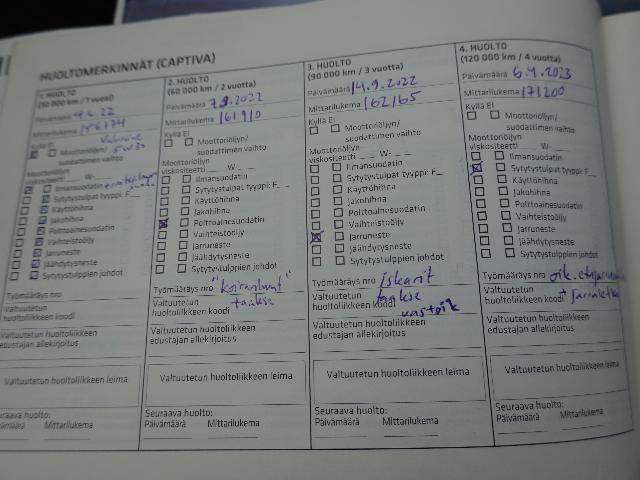 HUOLTOMERKINNÄT (CAPTIVA)
1. HUOLTO
(30 000 km / 1 vuosi)
Päivämäärä
Mittarilukema 156774
Kyllä Ei
Moottoriöljyn/
suodattimen vaihto
5w30
Moottoriöljyn
viskositeetti W-
Ilmansuodatin
Sytytystulpat tyyppi: F
Käyttöhihna
Jakohihna
Polttoainesuodatin
Vaihteistoöljy
Jarruneste
Jäähdytysneste
Sytytystulppien johdot
Työmääräys nro
Valtuutetun
huoltoliikkeen koodi
Valtuutetun huoltoliikkeen
edustajan allekirjoitus
Valtuutetun huoltoliikkeen leima
Seuraava huolto:
Päivämäärä Mittarilukema
2. HUOLTO
(60 000 km / 2 vuotta)
Päivämäärä 7.8.2022
Mittarilukema 161910
Kyllä Ei
Moottoriöljyn/
suodattimen vaihto
Moottoriöljyn
viskositeetti W-
Ilmansuodatin
Sytytystulpat tyyppi: F
Käyttöhihna
Jakohihna
Polttoainesuodatin
Vaihteistoöljy
Jarruneste
Jäähdytysneste
Sytytystulppien johdot
Työmääräys nro "koiranluut"
Valtuutetun taakse
huoltoliikkeen koodi
Valtuutetun huoltoliikkeen
edustajan allekirjoitus
Valtuutetun huoltoliikkeen leima
Seuraava huolto:
Päivämäärä Mittarilukema
3. HUOLTO
(90 000 km / 3 vuotta)
Päivämäärä 14.9.2022
Mittarilukema 162165
Kyllä Ei
Moottoriöljyn/
suodattimen vaihto
Moottoriöljyn
viskositeetti W-
Ilmansuodatin
Sytytystulpat tyyppi: F
Käyttöhihna
Jakohihna
Polttoainesuodatin
Vaihteistoöljy
Jarruneste
Jäähdytysneste
Sytytystulppien johdot
Työmääräys nro iskarit
Valtuutetun taakse
huoltoliikkeen koodi
Valtuutetun huoltoliikkeen
edustajan allekirjoitus
Valtuutetun huoltoliikkeen leima
Seuraava huolto:
Päivämäärä Mittarilukema
4. HUOLTO
(120 000 km / 4 vuotta)
Päivämäärä 6.4.2023
Mittarilukema 171200
Kyllä Ei
Moottoriöljyn/
suodattimen vaihto
Moottoriöljyn
viskositeetti W-
Ilmansuodatin
Sytytystulpat tyyppi: F
Käyttöhihna
Jakohihna
Polttoainesuodatin
Vaihteistoöljy
Jarruneste
Jäähdytysneste
Sytytystulppien johdot
Työmääräys nro oik.
Valtuutetun
huoltoliikkeen koodi
Valtuutetun huoltoliikkeen
edustajan allekirjoitus
Valtuutetun huoltoliikkeen leima
Seuraava huolto:
Päivämäärä Mittarilukema